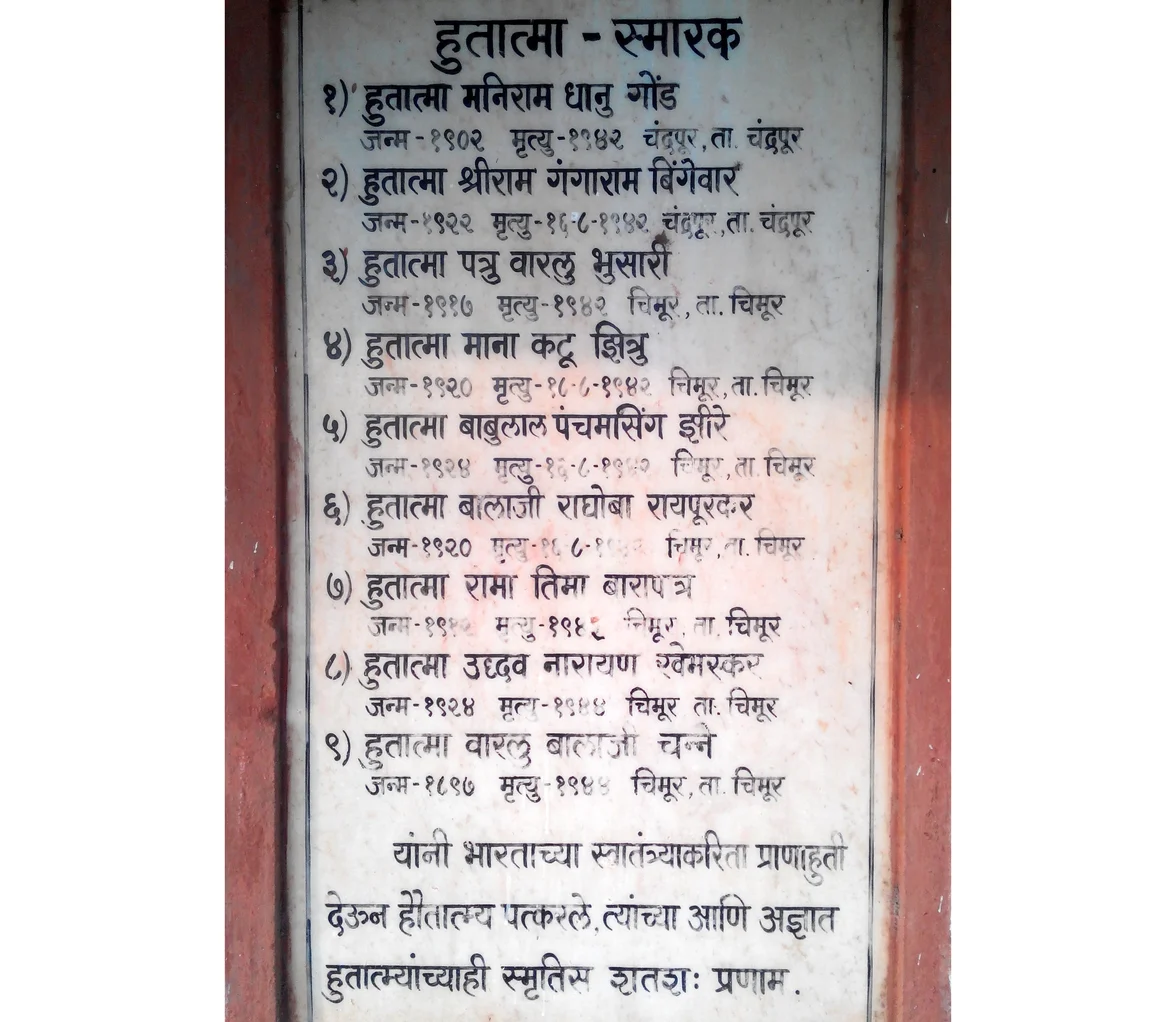 हुतात्मा - स्मारक
१) हुतात्मा मनिराम धानु गोंड
जन्म - १९०२ मृत्यु - १९४२ चंद्रपूर, ता. चंद्रपूर
२) हुतात्मा श्रीराम गंगाराम बिंगेवार
जन्म - १९२२ मृत्यु - १६-८-१९४२ चंद्रपूर, ता. चंद्रपूर
३) हुतात्मा पत्रु वारलु भुसारी
जन्म - १९१७ मृत्यु - १९४२ चिमूर, ता. चिमूर
४) हुतात्मा माना कटू झित्रु
जन्म - १९२० मृत्यु - १८-८-१९४२ चिमूर, ता. चिमूर
५) हुतात्मा बाबुलाल पंचमसिंग झीरे
जन्म - १९२४ मृत्यु - १६-८-१९४२ चिमूर, ता. चिमूर
६) हुतात्मा बालाजी राघोबा रायपूरकर
जन्म - १९२० मृत्यु - चिमूर, ता. चिमूर
७) हुतात्मा रामा तिमा बारापत्र
जन्म - मृत्यु - चिमूर, ता. चिमूर
८) हुतात्मा उद्दव नारायण खेमस्कर
जन्म - १९२४ मृत्यु - १९४४ चिमूर ता. चिमूर
९) हुतात्मा वारलु बालाजी चन्ने
जन्म - १८९७ मृत्यु - १९४४ चिमूर, ता. चिमूर
यांनी भारताच्या स्वातंत्र्याकरिता प्राणाहुती
देऊन हौतात्म्य पत्करले, त्यांच्या आणि अज्ञात
हुतात्म्यांच्याही स्मृतिस शतशः प्रणाम.